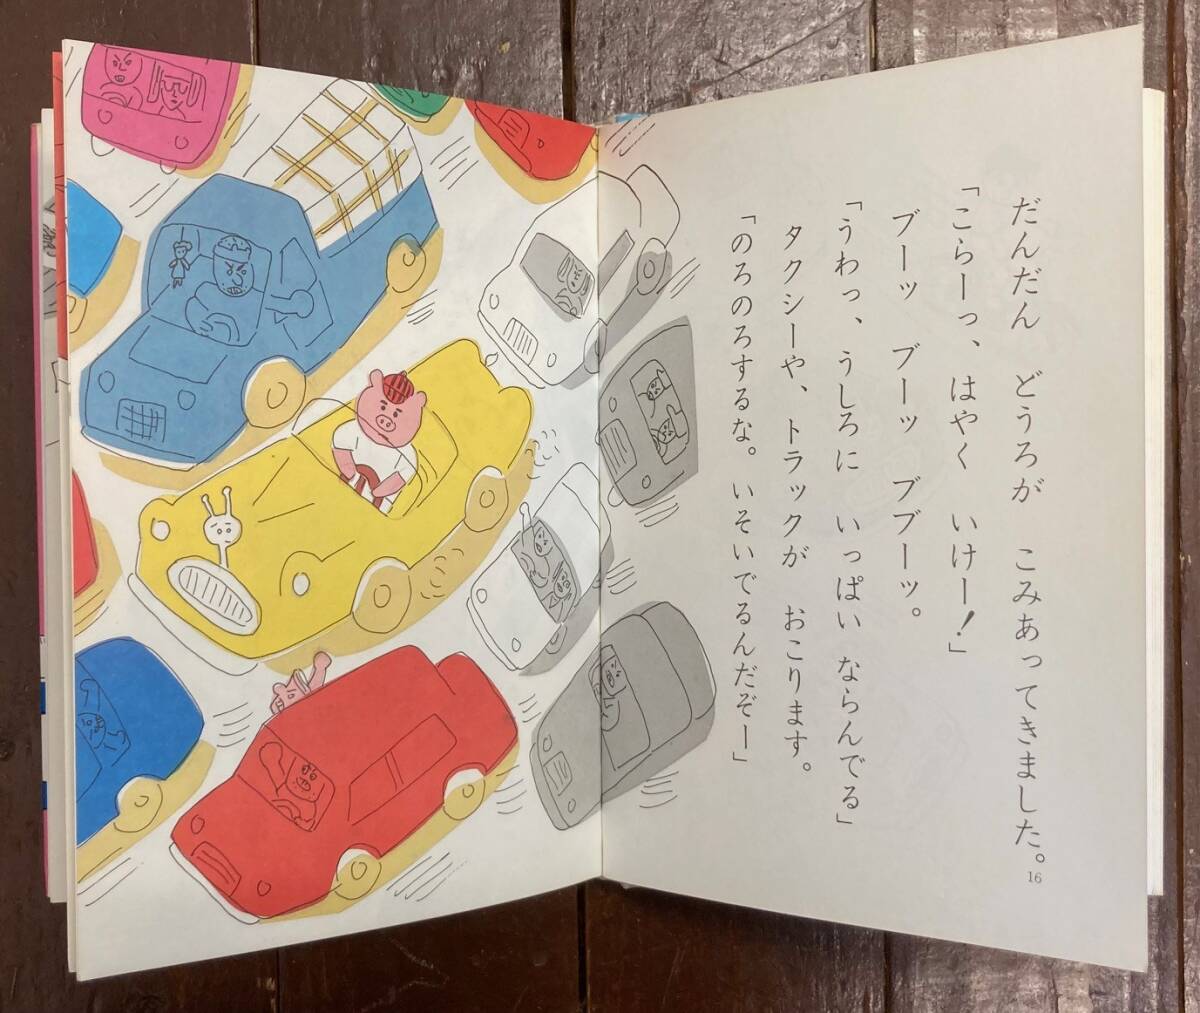 だんだん　どうろが　こみあってきました。
「こらーっ、はやく　いけー！」
ブーッ　ブーッ　ブブーッ。
「うわっ、うしろに　いっぱい　ならんでる」
タクシーや、トラックが　おこります。
「のろのろするな。いそいでるんだぞー」
16